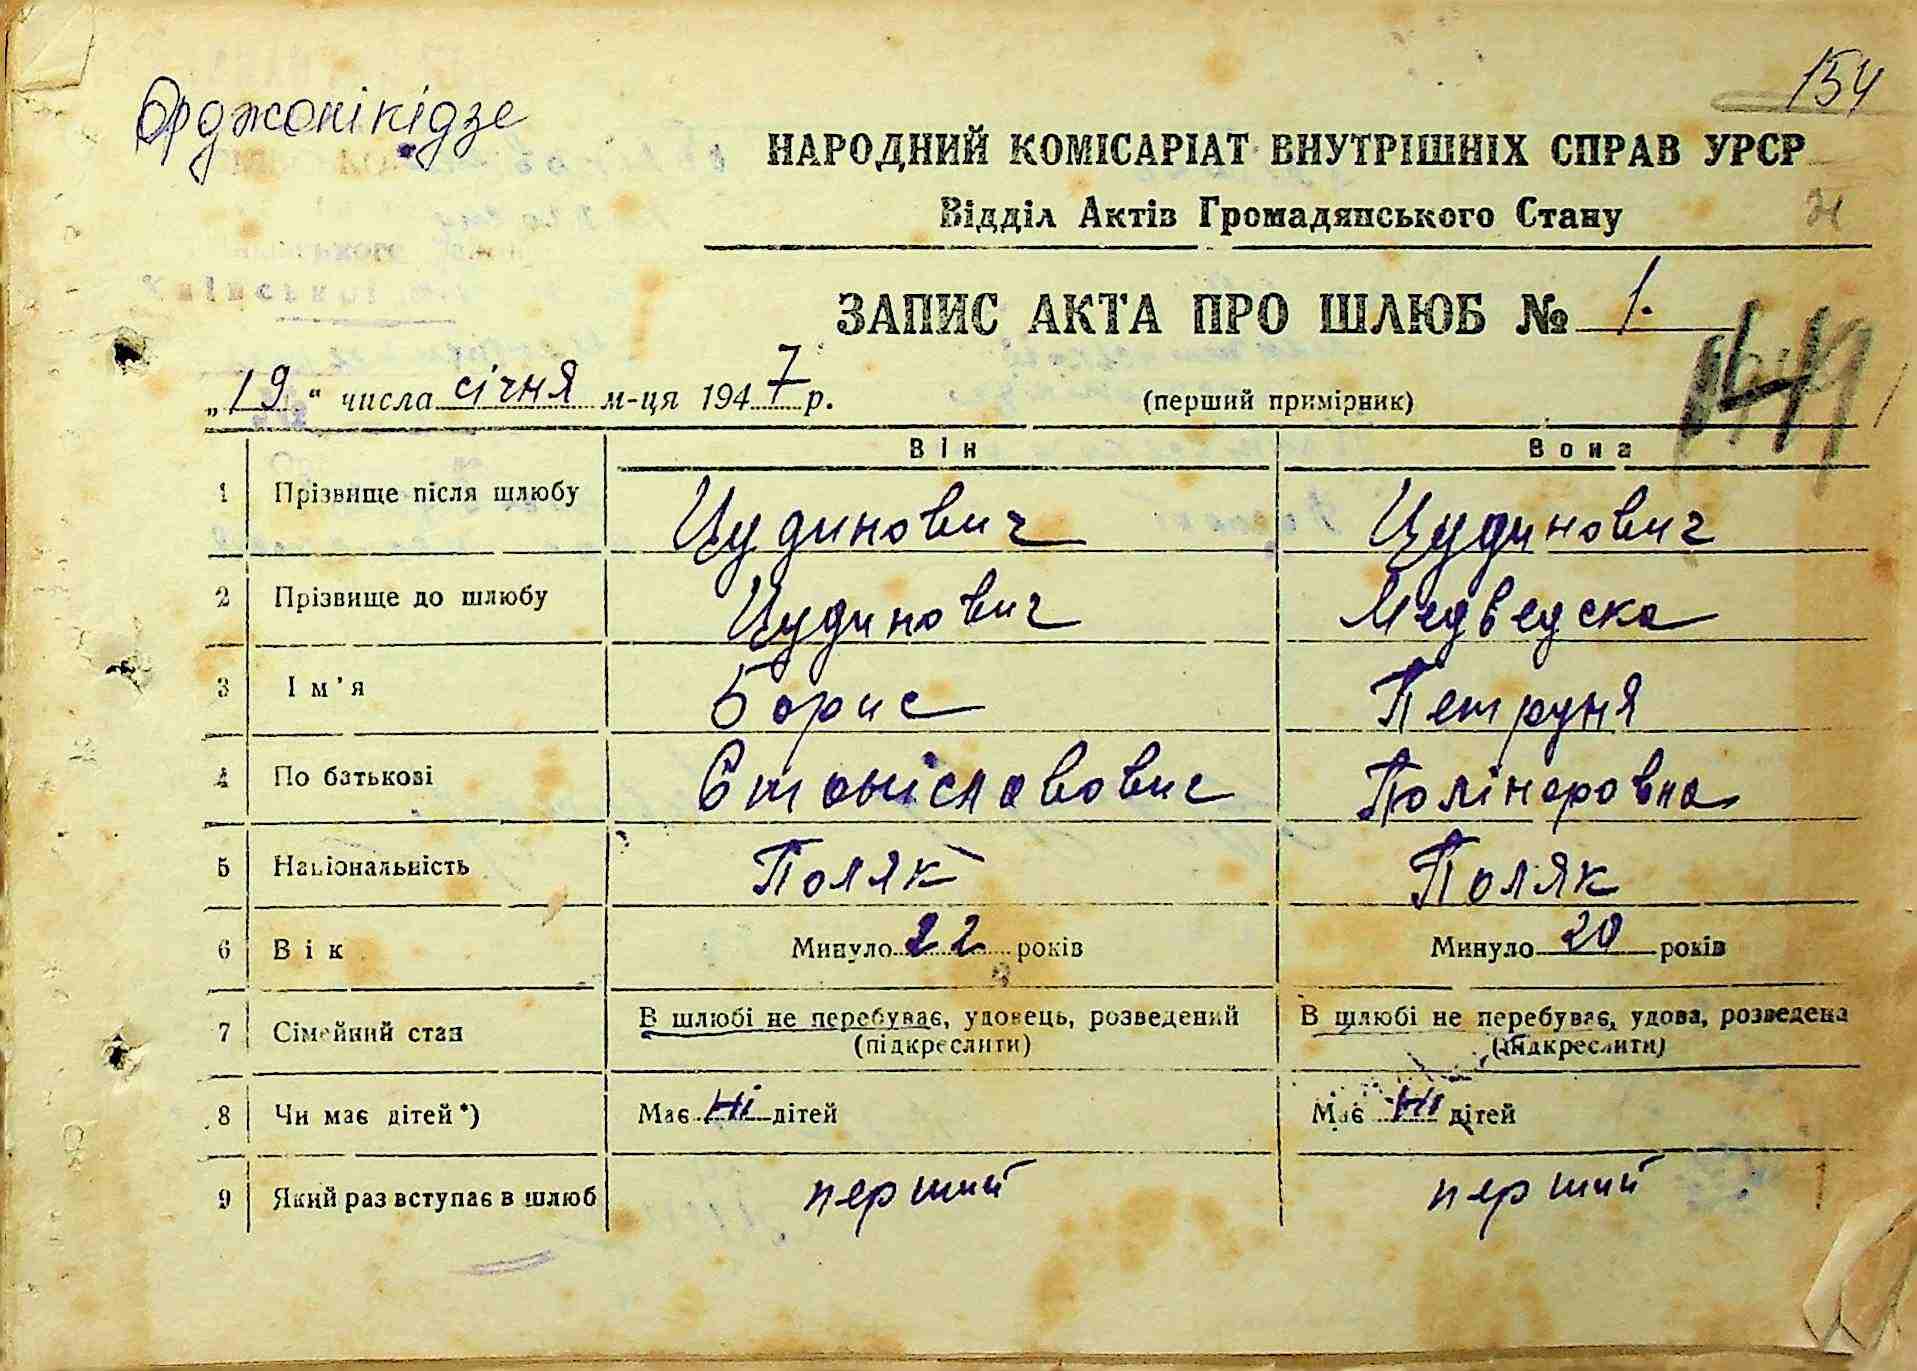 Орджонікідзе
154
НАРОДНИЙ КОМІСАРІАТ ВНУТРІШНІХ СПРАВ УРСР
Відділ Актів Громадянського Стану
ЗАПИС АКТА ПРО ШЛЮБ № 1.
„19“ числа січня м-ця 1947 р. (перший примірник)
Він Вона
1 Прізвище після шлюбу Цудинович Цудинович
2 Прізвище до шлюбу Цудинович Медведска
3 Ім'я Борис Петруня
4 По батькові Станіславович Полінаровна
5 Національність Поляк Поляк
6 Вік Минуло 22 років Минуло 20 років
7 Сімейний стан В шлюбі не перебуває, удовець, розведений (підкреслити) В шлюбі не перебуває, удова, розведена (підкреслити)
8 Чи має дітей*) Має ні дітей Має ні дітей
9 Який раз вступає в шлюб перший перший